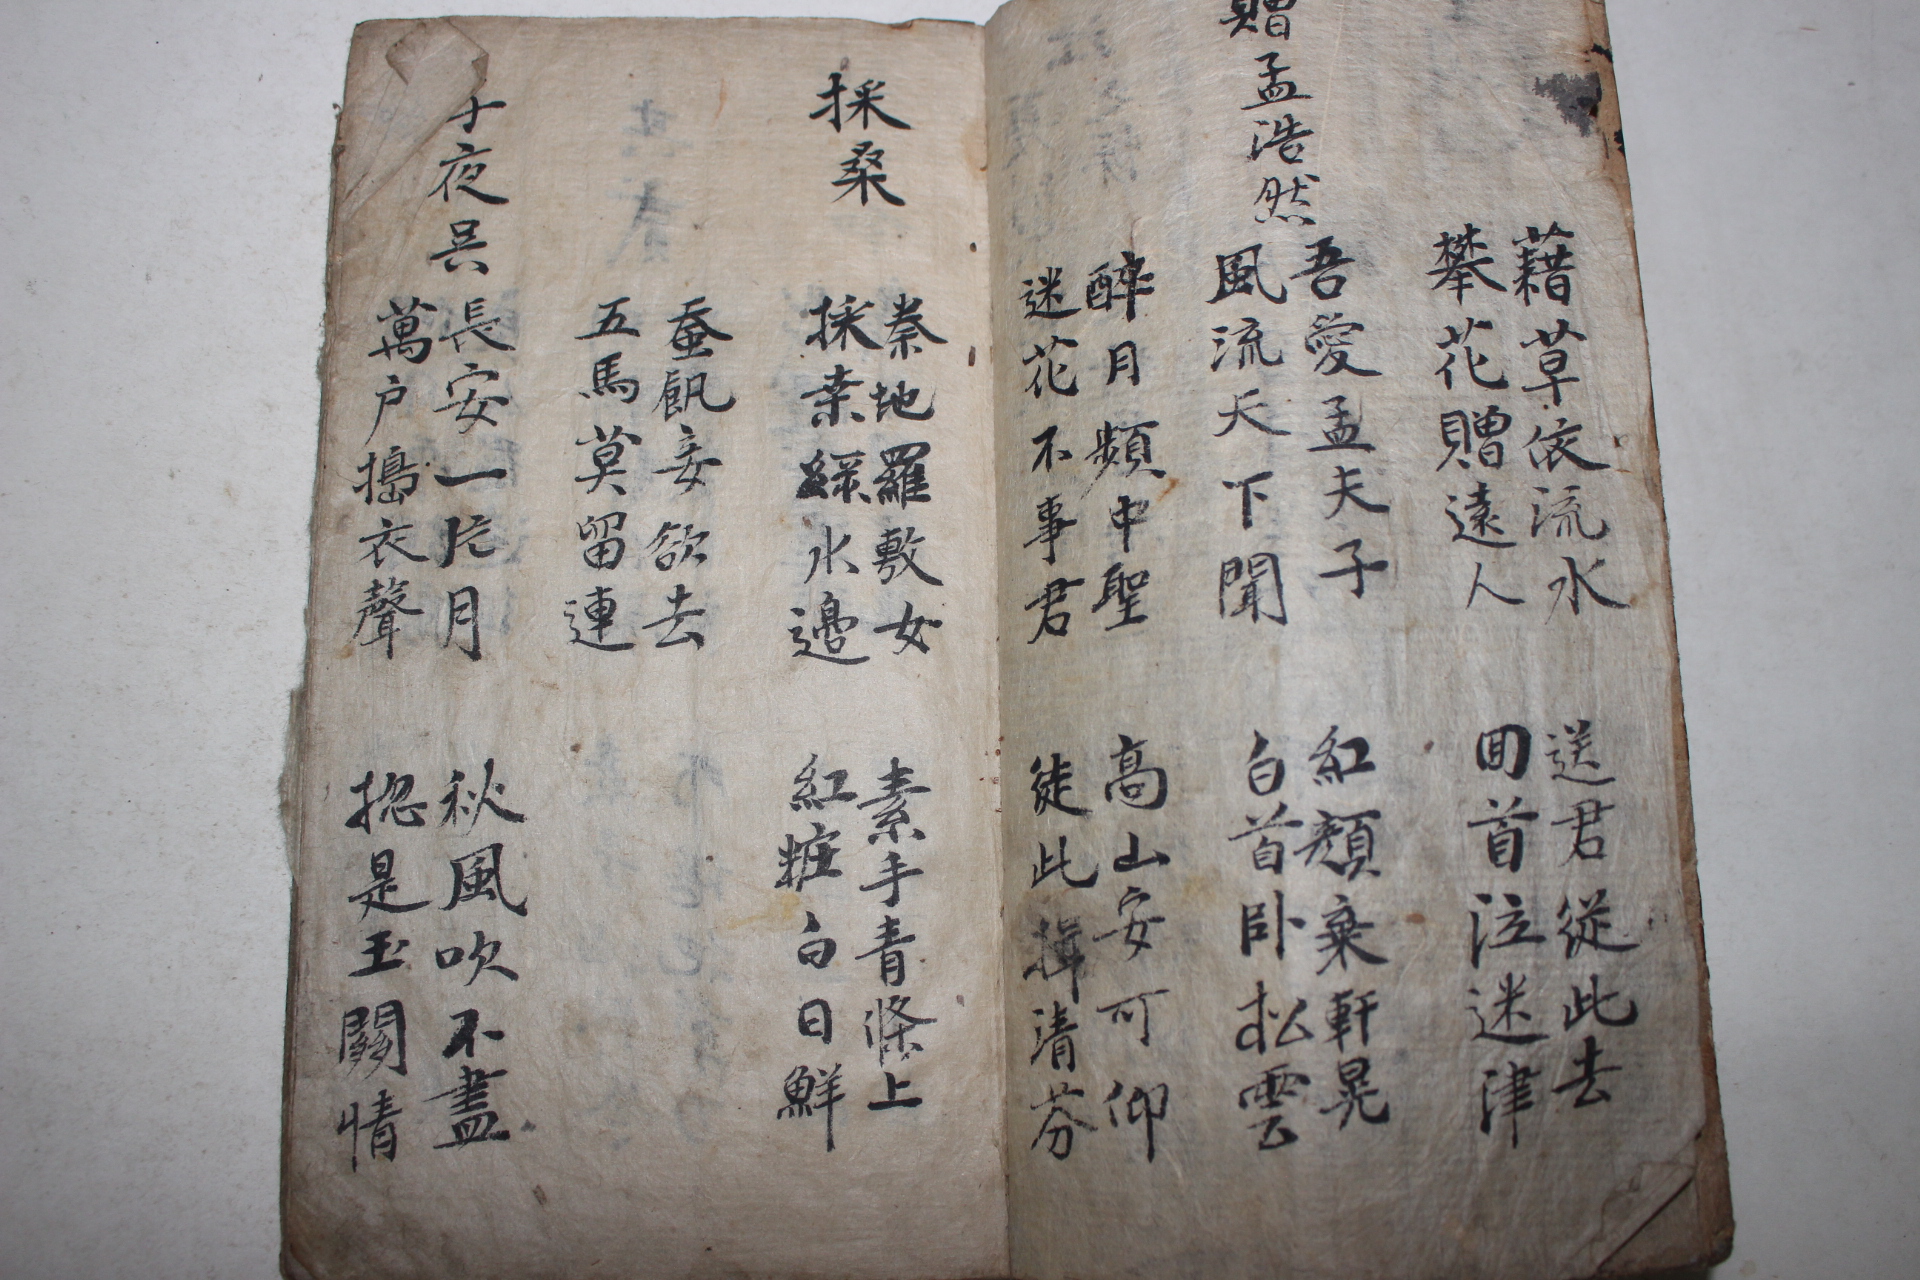 藉草依流水
攀花贈遠人
送君從此去
回首泣迷津
贈孟浩然
吾愛孟夫子
風流天下聞
紅顔棄軒晃
白首卧松雲
醉月頻申聖
迷花不事君
高山安可仰
徒此揖清芬
採桑
秦地羅敷女
採桒綠水邊
素手青條上
紅粧白日鮮
蚕飢妾欲去
五馬莫留連
子夜呉
長安一片月
萬戶搗衣聲
秋風吹不盡
捴是玉關情